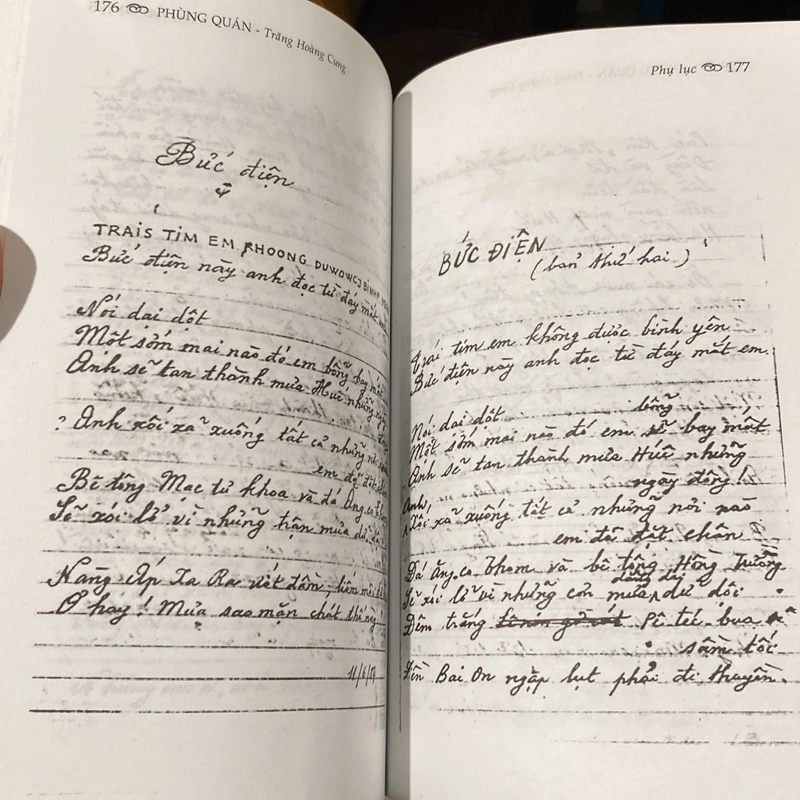 176 PHÙNG QUÁN - Trăng Hoàng Cung
Bức điện
TRAIS TIM EM KHOONG DUWOWCJ BINHF
Bức điện này anh đọc từ đáy mắt
Nói dại dột
Một sớm mai nào đó em bỗng bay mất
Anh sẽ tan thành mưa Huế những
? Anh xối xả xuống tất cả những nơi
em đã đặt
Bê tông Mạc tư khoa và đá Ăng co
Sẽ xói lở vì những trận mưa dữ
Nàng Áp Xa Ra vớt đầm,
Ơ hay! Mưa sao mặn chát thế này
Phụ lục 177
BỨC ĐIỆN
(bản thứ hai)
Trái tim em không được bình yên
Bức điện này anh đọc từ đáy mắt em
Nói dại dột
bỗng
Một sớm mai nào đó em sẽ bay mất
Anh sẽ tan thành mưa Huế những
ngày đông
Anh
Xối xả xuống tất cả những nơi nào
em đã đặt chân
Đá Ăng co Thom và bê tông Hồng Trường
dằng dai
Sẽ xói lở vì những cơn mưa dữ dội
Đêm trắng Pê téc bua
sầm tối
Đền Bai On ngập lụt phải đi thuyền.